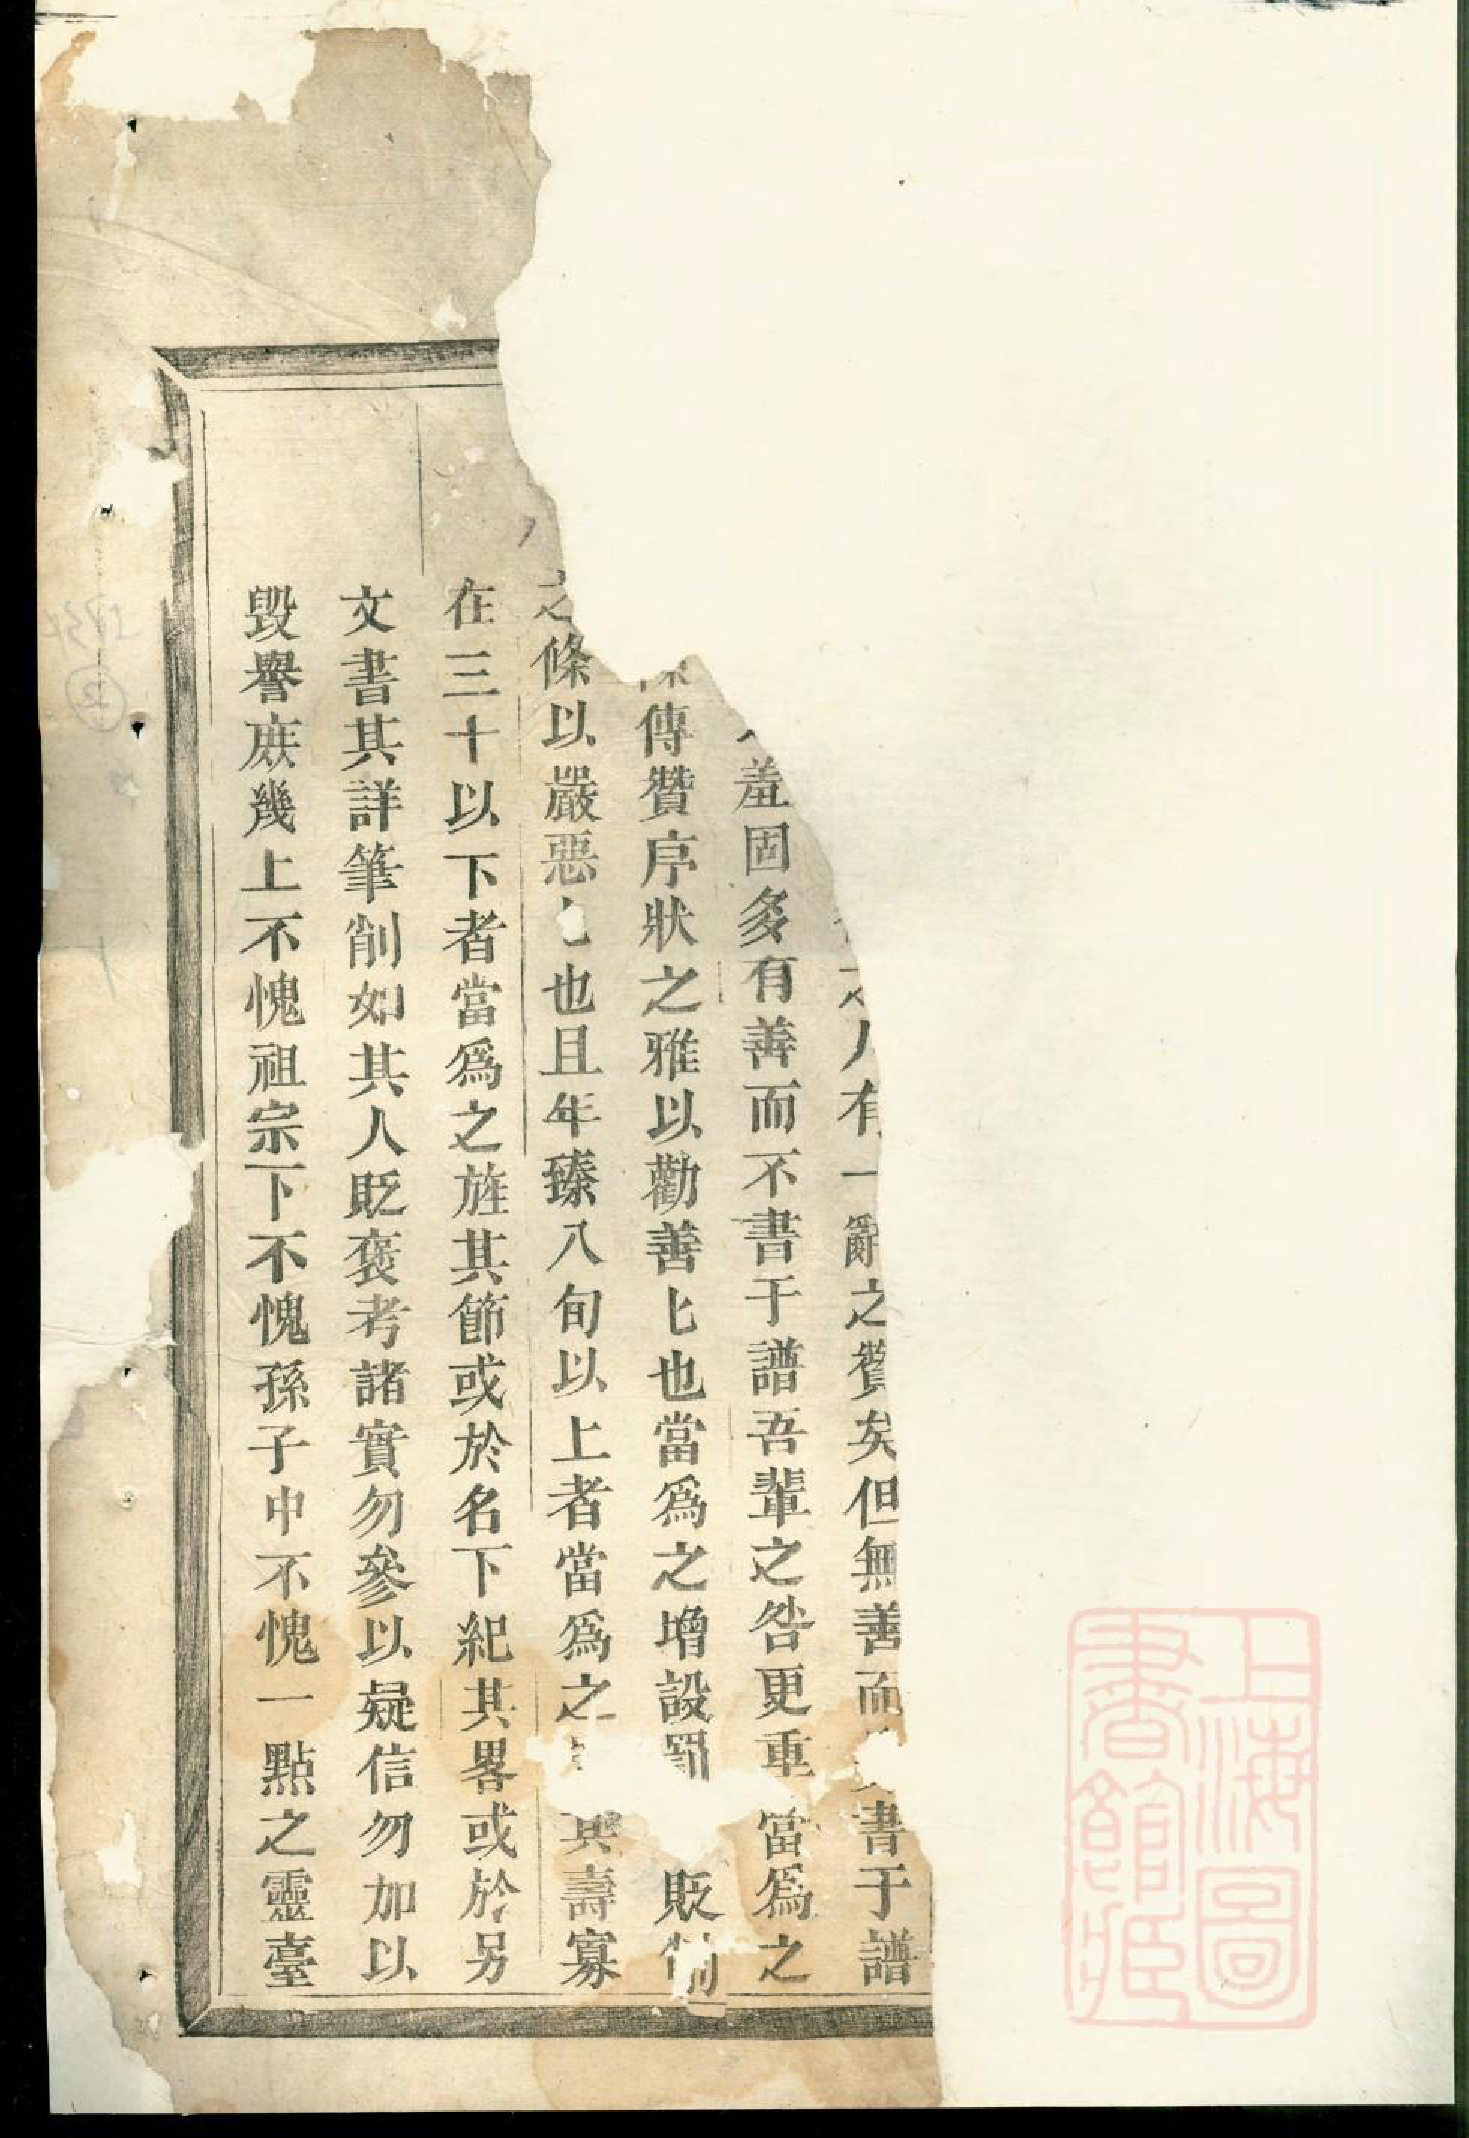 人有一辭之贊矣但無善而書于譜
羞固多有善而不書于譜吾輩之咎更重當爲之
傳贊序狀之雅以勸善匕也當爲之增設罰貶
之條以嚴惡匕也且年臻八旬以上者當爲之其壽寡
在三十以下者當爲之旌其節或於名下紀其畧或於另
文書其詳筆削如其人貶褒考諸實勿參以疑信勿加以
毀譽庻幾上不愧祖宗下不愧孫子中不愧一點之靈臺
上海圖書館藏